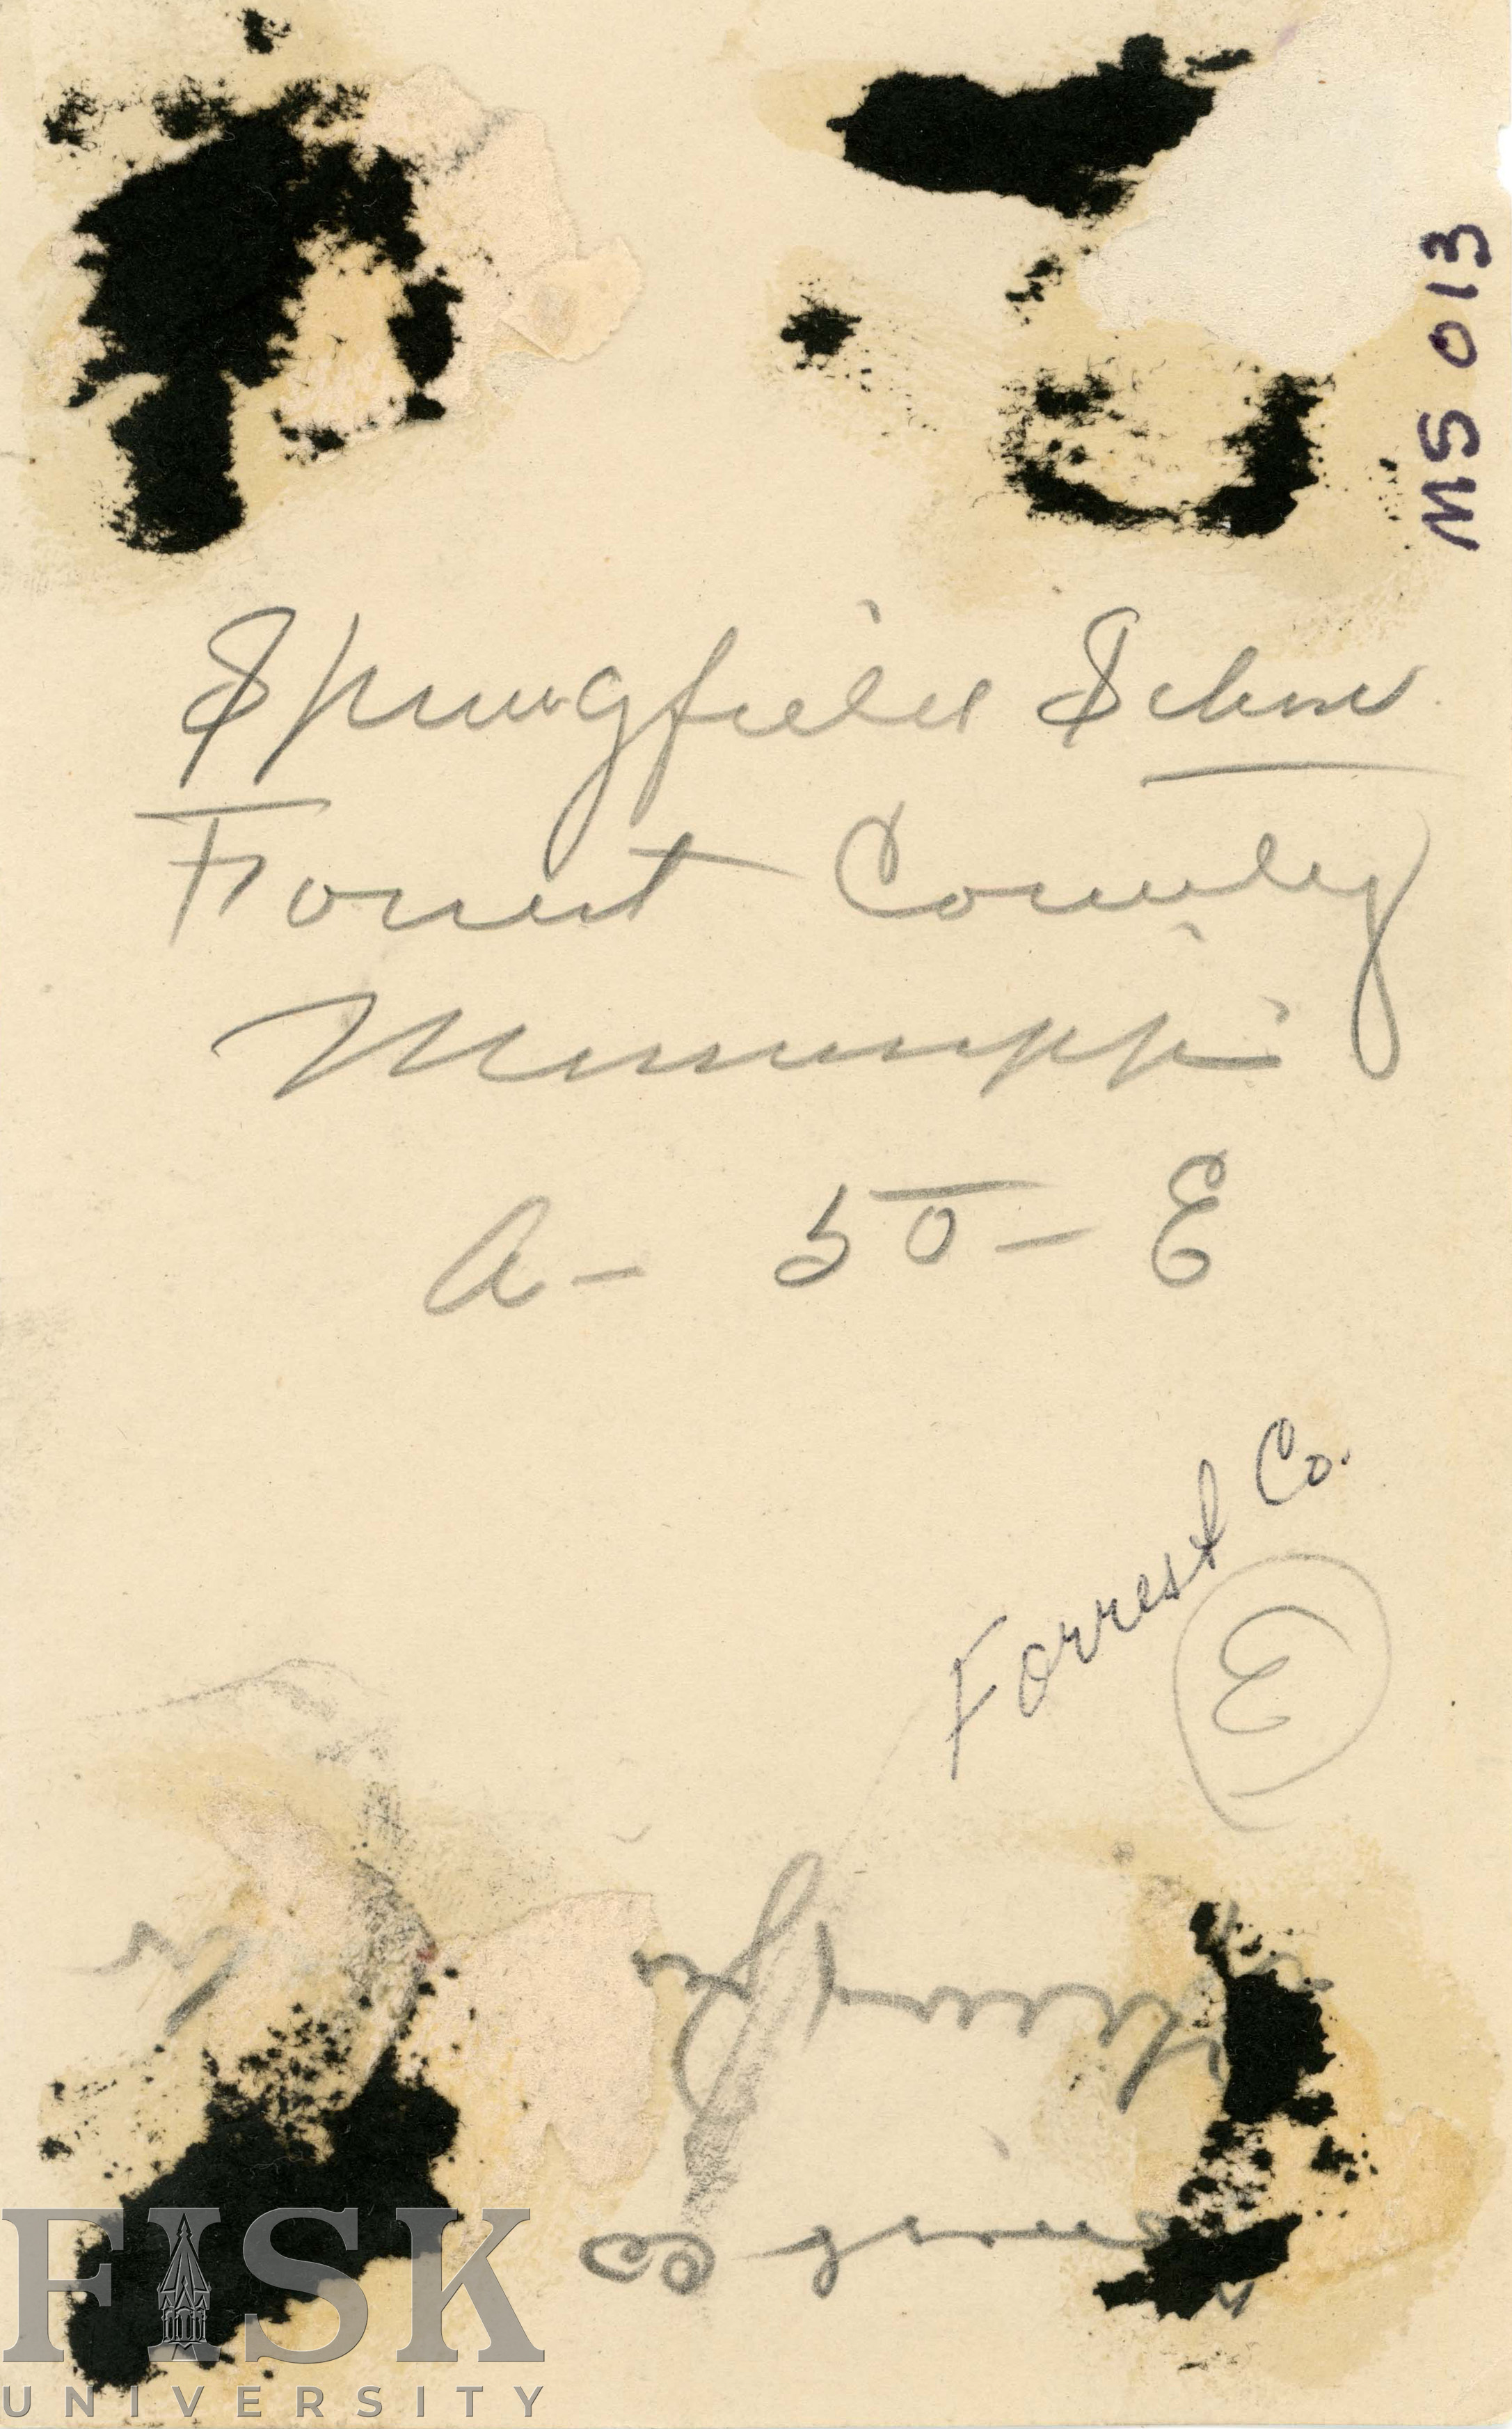 MS 013
Springfield School
Forrest County
Mississippi
A- 50- E
Forrest Co.
3
Co
FISK
UNIVERSITY